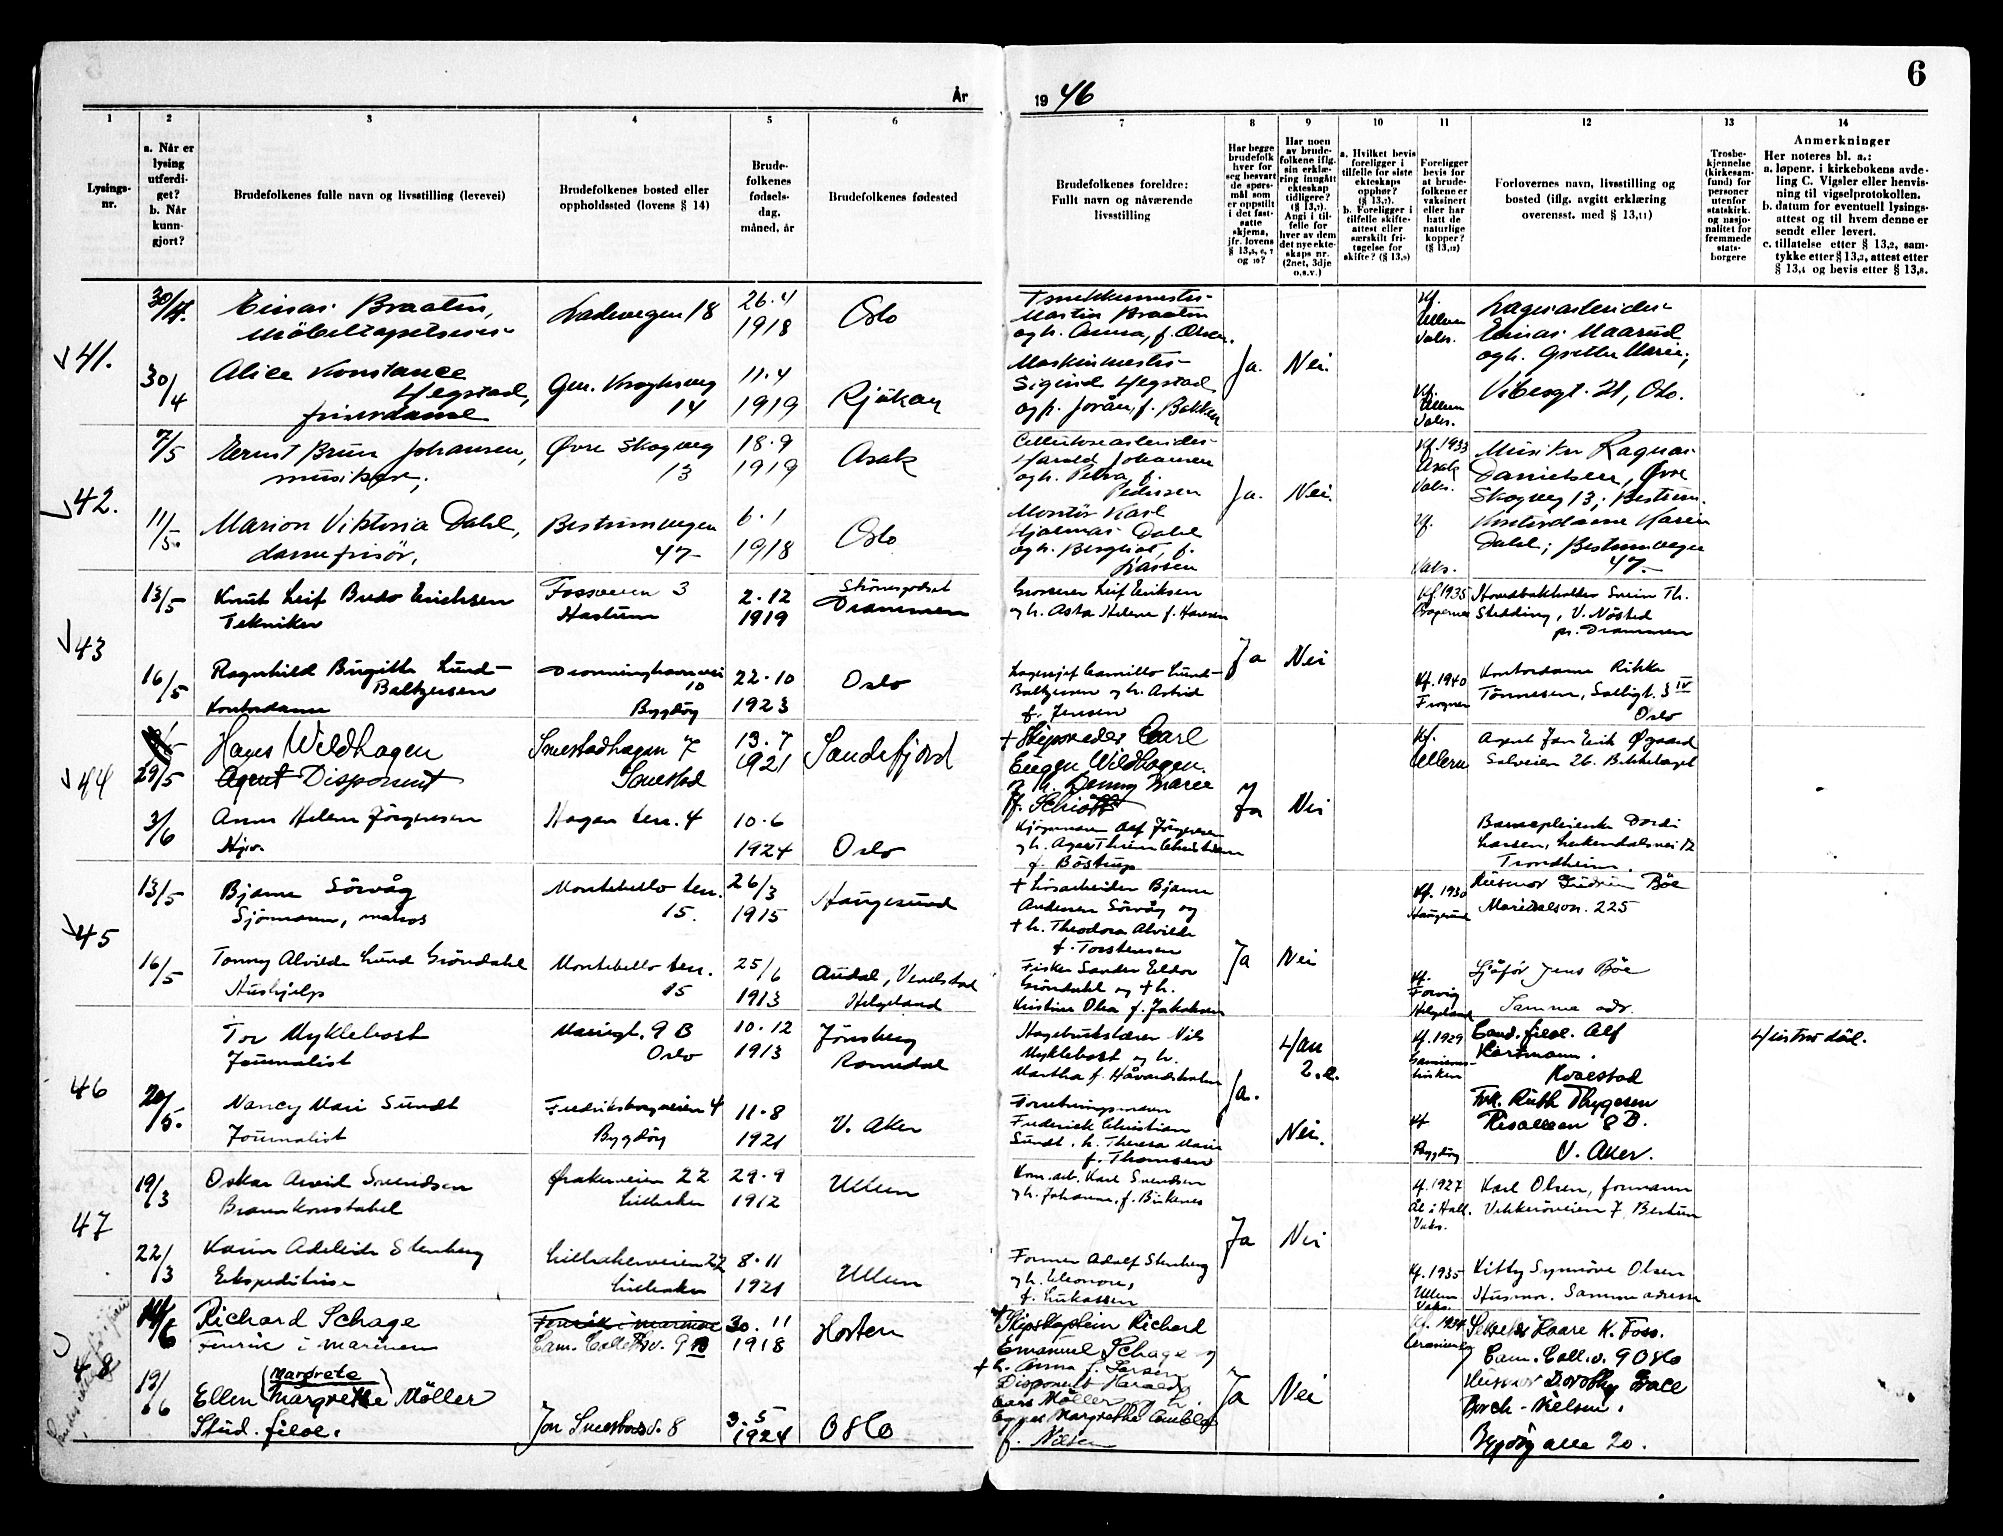 6
År
19 46
1
2
3
4
5
6
7
8
9
10
11
12
13
14
Lysings-
nr.
a. Når er
lysing
utferdi-
get?
b. Når
kunn-
gjort?
Brudefolkenes fulle navn og livsstilling (levevei)
Brudefolkenes bosted eller
oppholdssted (lovens § 14)
Brude-
folkenes
fødsels-
dag.
måned, år
Brudefolkenes fødested
Brudefolkenes foreldre:
Fullt navn og nåværende
livsstilling
Har begge
brudefolk
hver for
seg besvart
de spørs-
mål som
er oppstilt
i det fast-
satte
skjema,
jfr. lovens
og 10?
Har noen
av brude-
folkene iflg.
sin erklæ-
ring inngått
ekteskap
tidligere?
Angi i til-
felle for
hver av dem
det nye ekte-
skaps nr.
(2net, 3dje
o.s.v.)
a. Hvilket bevis
foreligger i
tilfelle for siste
ekteskaps
opphør?
b. Foreligger i
tilfelle skifte-
attest eller
særskilt fri-
tagelse for
skifte?
Foreligger
bevis for
at brude-
folkene er
vaksinert
eller har
hatt de
naturlige
kopper?
Forlovernes navn, livsstilling og
bosted (iflg. avgitt erklæring
overensst. med § 13,11)
Trosbe-
kjennelse
(kirkesam-
fund) for
personer
utenfor
statskirk.
og nasjo-
nalitet for
fremmede
stats-
borgere
Anmerkninger
Her noteres bl. a.:
a. løpenr. i kirkebokens avde-
ling C. Vigsler eller henvis-
ning til vigselprotokollen.
b. datum for eventuell lysings-
attest og til hvem denne er
sendt eller levert.
c. tillatelse etter § 13,2, sam-
tykke etter § 13,3, attest etter
§ 13,4 og bevis etter § 13,8.
41.
30/4.
Einar Braaten,
Møbeltapetserer
Ladevegen 18
26.4
1918
Oslo
Snekkermester
Martin Braaten
og h. Anna, f. Olsen.
Kf.
Ullern
Vaks.
Lagerarbeider
Einar Maarud
og h. Grethe Marie,
Ja. Nei.
30/4
Alice Konstance
Hegstad,
frisørdame
Gen. Kroghsveg
14
11.4
1919
Rjukan
Maskinmester
Sigurd Hegstad
og h. Jorån, f. Bakken
Kf.
Ullern
Vaks.
Vibesgt. 21, Oslo.
42.
7/5
Ernst Brun Johansen,
musiker,
Øvre Skogveg
13
18.9
1919
Asak
Cellulosearbeider
Harald Johansen
og h. Petra, f.
Pedersen
Kf. 1933
Asak
Vaks.
Musiker Ragnar
Danielsen, Øvre
Skogveg 13, Bestum.
Ja. Nei.
11/5.
Marion Viktoria Dahl,
damefrisør.
Bestumvegen
47
6.1
1918
Oslo
Montør Karl
Hjalmar Dahl
og h. Bergliot, f.
Larsen
Kf.
Vaks.
Kontordame Karin
Dahl, Bestumvegen
47
43
13/5
Knut Leif Budo Erichsen
Tekniker
Fossveien 3
Hastum
2.12
1919
Strømsgodset
Drammen
Grosserer Leif Eriksen
og h. Asta Helene f. Hansen
Kf. 1935
Bragernes
Hovedbokholder Svein Th.
Stedding, V. Nøsted
pr. Drammen
Ja Nei
16/5
Ragnhild Birgitte Lund-
Baltzersen
Kontordame
Dronninghavnvei
10
Bygdøy
22.10
1923
Oslo
Lagersjef Camillo Lund-
Baltzersen og h. Astrid
f. Jensen
Kf. 1940
Frogner
Kontordame Rikka
Tønnesen, Solligt. 3 IV
Oslo
44
29/5
Hans Wildhagen
Agent Disponent
Smestadhagen 7
Smestad
13.7
1921
Sandefjord
+ Skipsreder Carl
Eugen Wildhagen.
og h. Denny Marie
f. Schiøtt
Kf.
Ullern
Agent Jan Erik Øgaard
Solveien 26. Bekkelaget
Ja Nei
3/6
Anne Helene Jørgensen
Hjv.
Hagan terr. 4
10.6
1924
Oslo
f. Bøstrup
Barnepleierske Dordi
Larsen,
Trondheim.
45
13/5
Bjarne Sørvåg
Sjømann, matros
Montebello terr.
15.
26/3
1915
Haugesund
+ Løsarbeider Bjarne
Andersen Sørvåg og
+ h. Theodora Alvilde
f. Torstensen
Kf. 1930
Haugesund
Husmor Gudrun Bøe
Maridalsvn. 225
Ja Nei
16/5
Tommy Alvilde Lund Grøndahl
Hushjelp
Montebello terr.
15
25/6
1913
Helgeland
Fisker Sander Eldor
Grøndahl og + h.
Kristine Olea f. Jakobsen
Kf.
Forvig
Helgeland
Sjåfør Jens Bøe
Samme adr.
46
20/5.
Tor Myklebost
Journalist
Mariegt. 9 B
Oslo
10.12
1913
Jønsberg
Romedal
Hagebrukslærer Nils
Myklebost og h.
Martha f. Håvardsholm
Ja.
2.e.
Kf. 1929
Cand. filol. Alf
Hartmann.
Kvaestad
Nancy Mari Sundt
Journalist
Fredriksborgveien 4
Bygdøy
11.8
1921
V. Aker
Forretningsmann
Frederick Christian
Sundt. h. Theresa Marie
f. Thomsen
Nei.
Kf
Bygdøy
Frk. Ruth Thygesen
Risalleen 8 B.
V. Aker.
47
19/3
Oskar Arvid Svendsen
Brannkonstabel
Ørakerveien 22
Lilleaker
29.9
1912
Ullern
Kom.arb. Karl Svendsen
og h. Johanne, f. Birkenes
Kf. 1927
Ål i Hall.
Vaks.
Karl Olsen, formann
Vekkerøveien 7. Bestum
Ja Nei
22/3
Karin Adeleide Stenberg
Ekspeditrise
Lilleakerveien 22
Lilleaker
8.11
1921
Ullern
Former Adolf Stenberg
og h. Eleonore,
f. Lukassen
Kf. 1935
Ullern
Vaks.
Kitty Synnøve Olsen
Husmor. Samme adresse
48
14/6
Richard Schage
Fenrik i marinen
Fenrik i marinen
Cam. Collettsv. 9 B
30.11
1918
Horten
+ Skipskaptein Richard
Emanuel Schage og
+ h. Anna f. Larsen
Kf. 1934
Sekretær Kaare K. Foss.
Cam. Coll.v. 9 Oslo
Ja Nei
19/6
Ellen (Margrete) Margrethe Møller
Stud. filol.
Jon Smestads v. 8
3.5
1924
Oslo
Disponent Harald
Lars Møller og h.
Agnes Margrethe
f. Nilsen
Husmor Dorothy Tace
Borch-Nielsen.
Bygdøy alle 20.